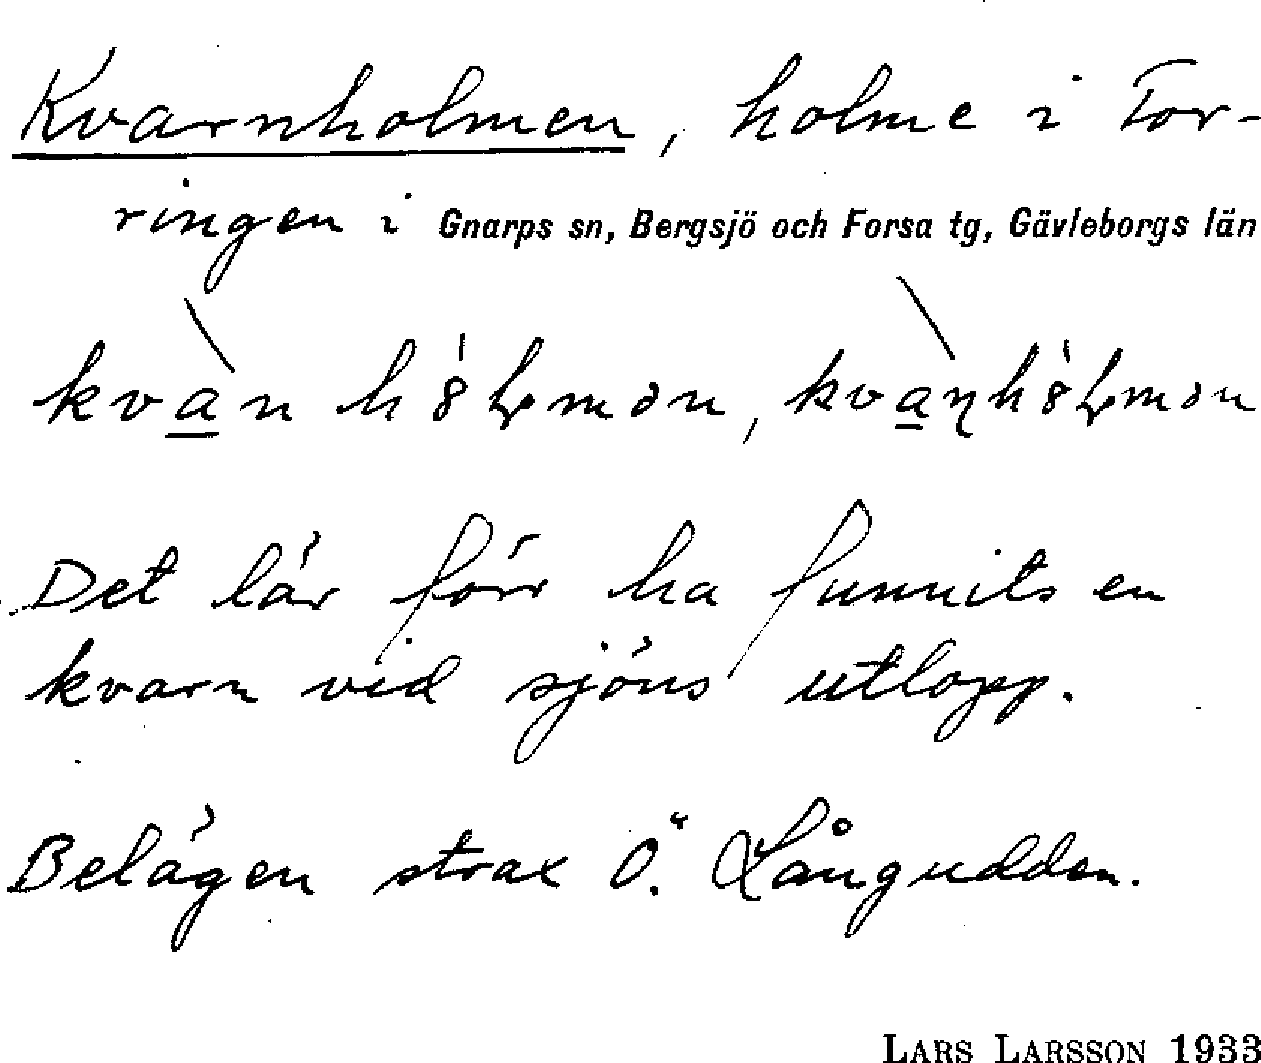 Kvarnholmen, holme i Tor-
ringen i Gnarps sn, Bergsjö och Forsa tg, Gävleborgs län
Det lär förr ha funnits en
kvarn vid sjöns utlopp.
Belägen strax Ö. Långudden.
LARS LARSSON 1933